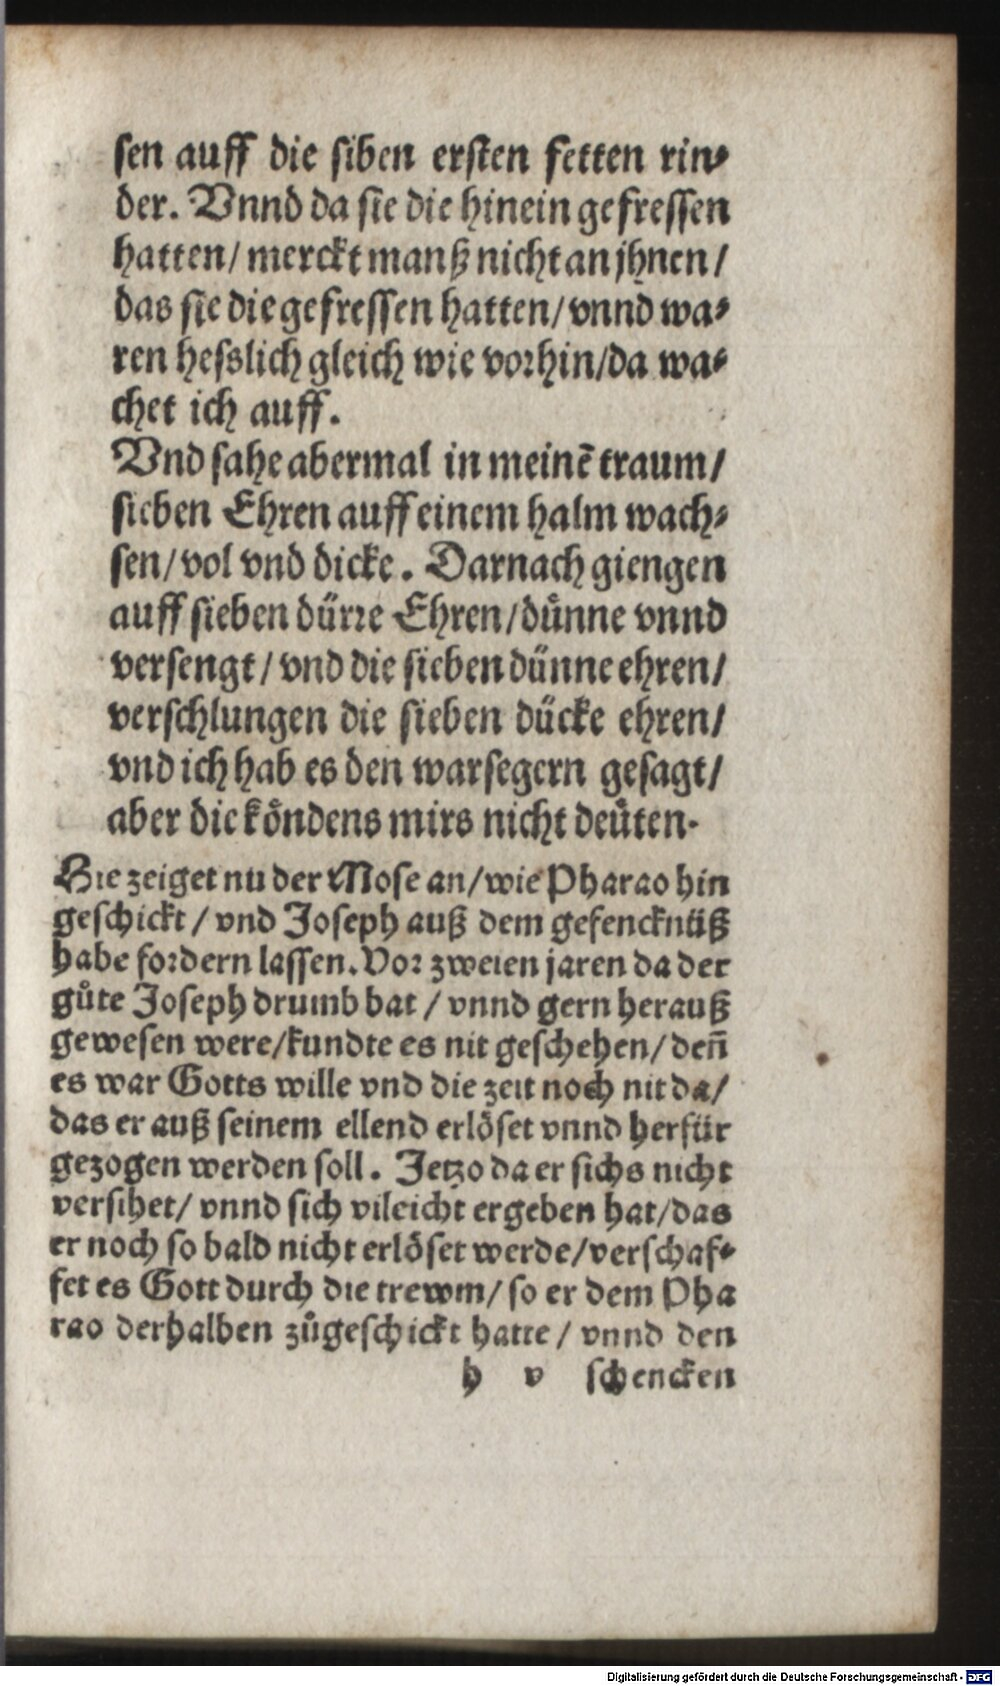 sen auff die siben ersten fetten rin⸗
der. Vnnd da sie die hinein gefressen
hatten/ merckt manß nicht an jhnen/
das sie die gefressen hatten/ vnnd wa⸗
ren hesslich gleich wie vorhin/da wa⸗
chet ich auff.
Vnd sahe abermal in meinē traum/
sieben Ehren auff einem halm wach⸗
sen/ vol vnd dicke. Darnach giengen
auff sieben dürre Ehren/dünne vnnd
versengt/ vnd die sieben dünne ehren/
verschlungen die sieben dücke ehren/
vnd ich hab es den warsegern gesagt/
aber die köndens mirs nicht deüten.
Hie zeiget nu der Mose an/wie Pharao hin
geschickt/ vnd Joseph auß dem gefencknüß
habe fordern lassen. Vor zweien jaren da der
gůte Joseph drumb bat/ vnnd gern herauß
gewesen were/kundte es nit geschehen/ deñ
es war Gotts wille vnd die zeit noch nit da/
das er auß seinem ellend erlöset vnnd herfür
gezogen werden soll. Jetzo da er sichs nicht
versihet/ vnnd sich vileicht ergeben hat/das
er noch so bald nicht erlöset werde/verschaf⸗
fet es Gott durch die trewm/ so er dem Pha
rao derhalben zůgeschickt hatte/ vnnd den
h v schencken
Digitalisierung gefördert durch die Deutsche Forschungsgemeinschaft - DFG